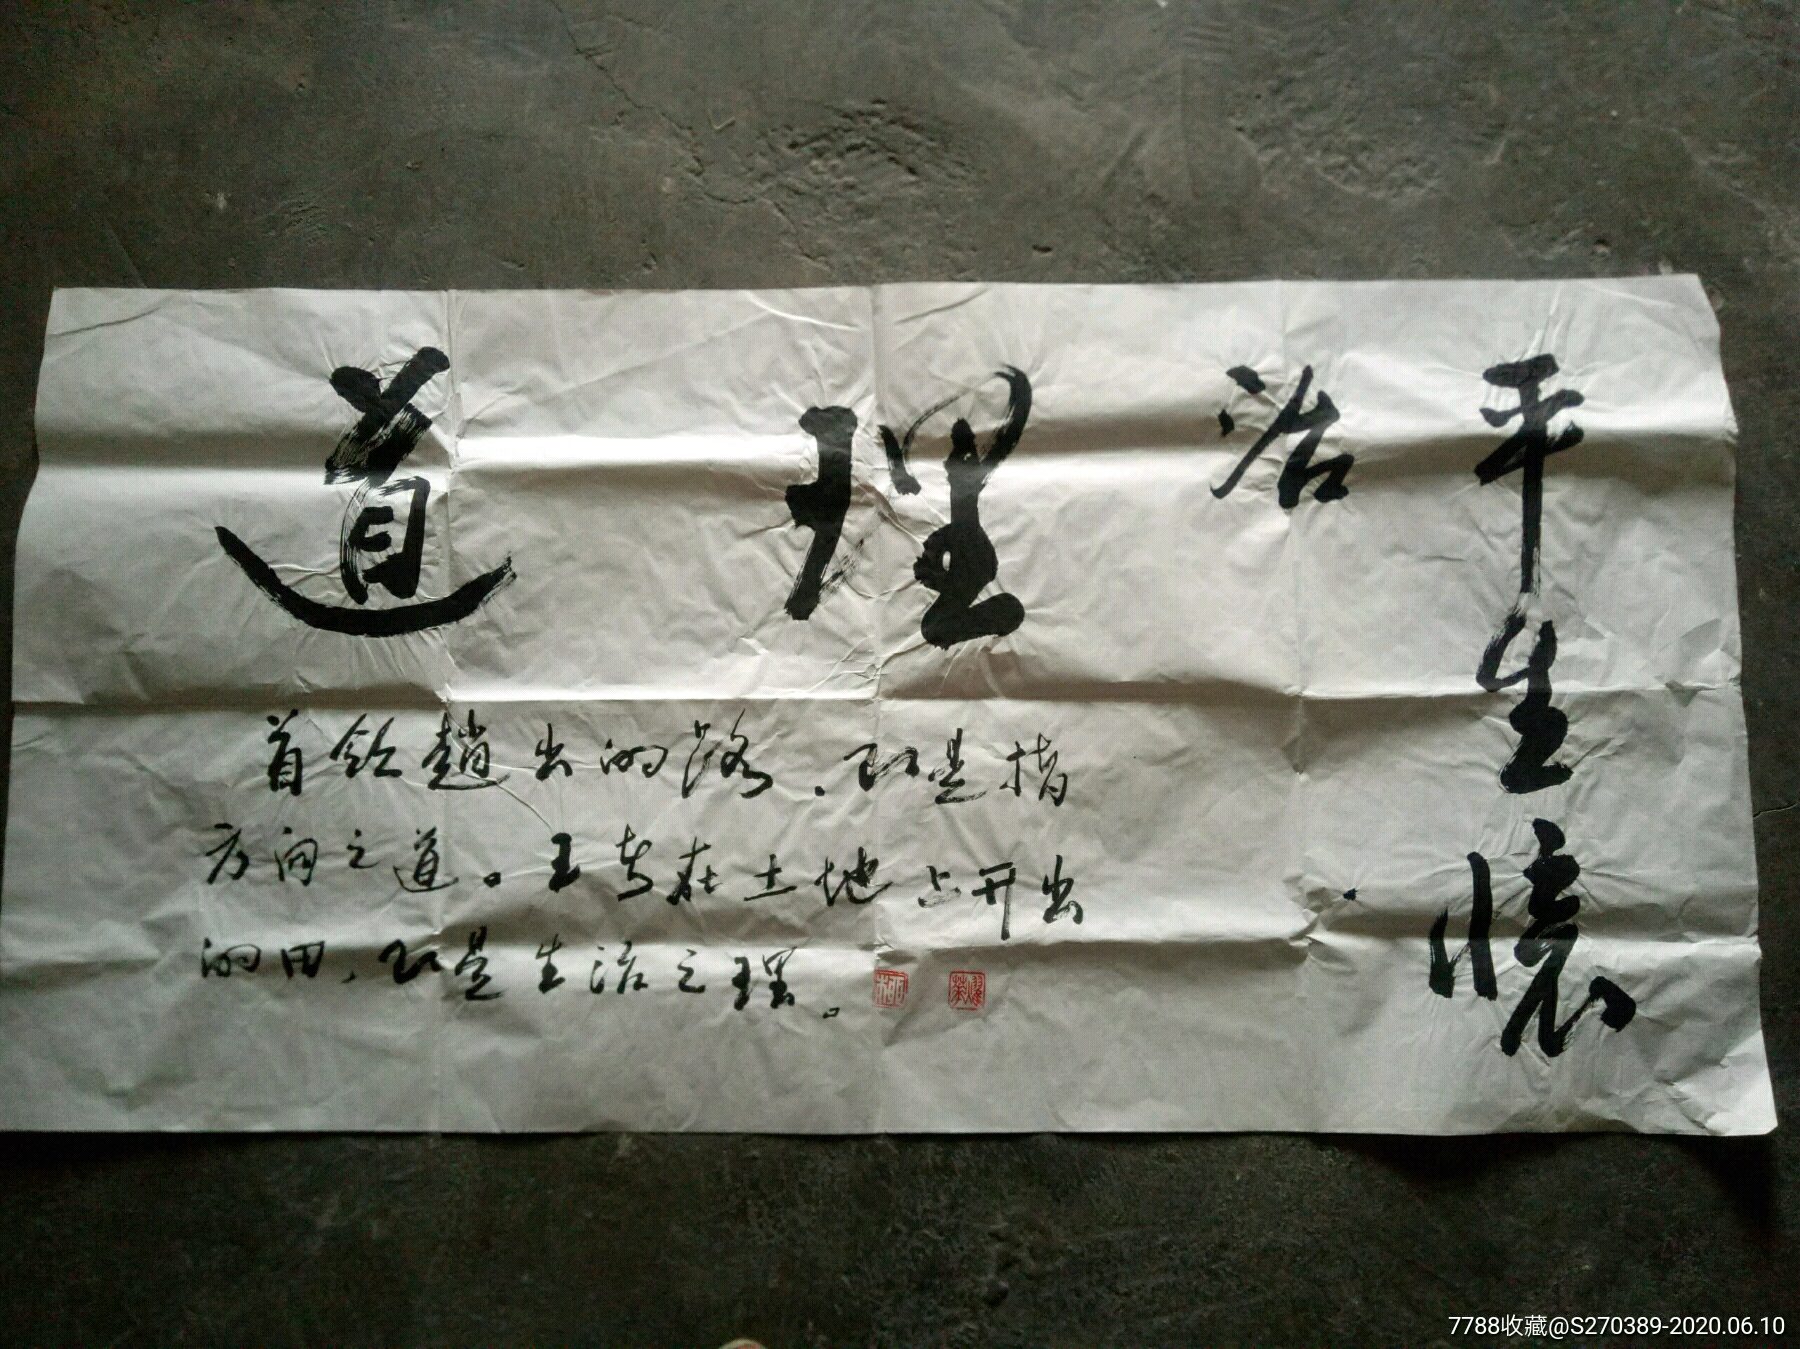 道理
冶
平生懷
首领趟出的路，就是指
方向之道。王者在土地上开出
的田，就是生活之理。
7788收藏@S270389-2020.06.10